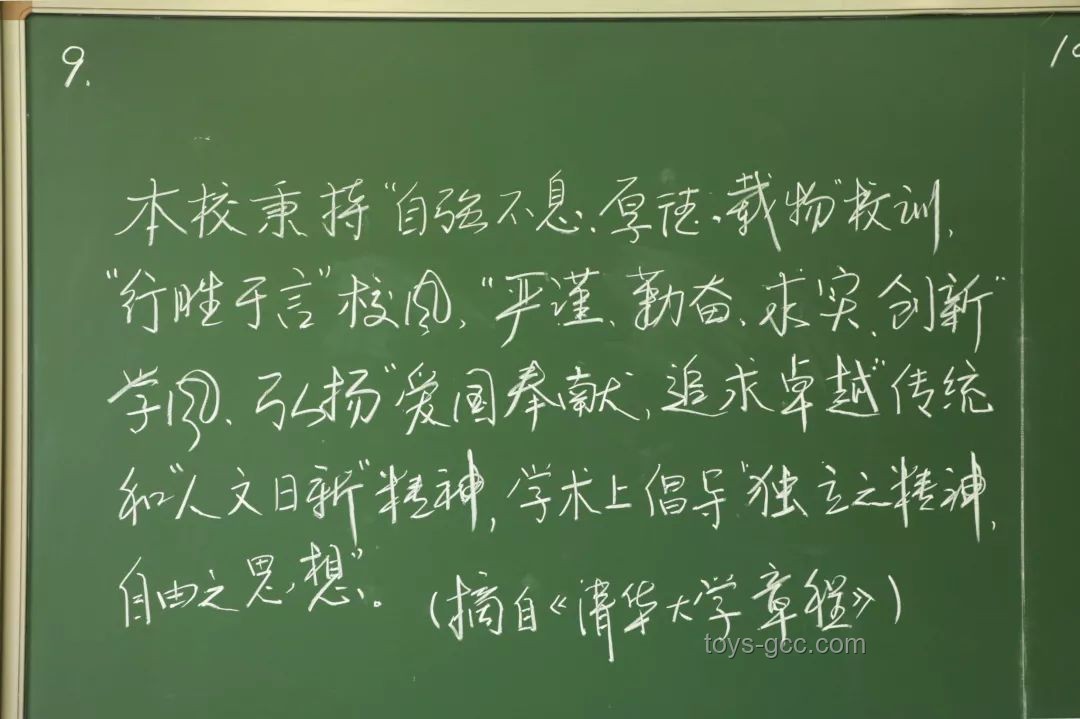 9.
10
本校秉持“自强不息、厚德、载物”校训,
“行胜于言”校风、“严谨、勤奋、求实、创新”
学风、弘扬“爱国奉献,追求卓越”传统
和“人文日新”精神,学术上倡导“独立之精神,
自由之思想”。
(摘自《清华大学章程》)
toys-gcc.com